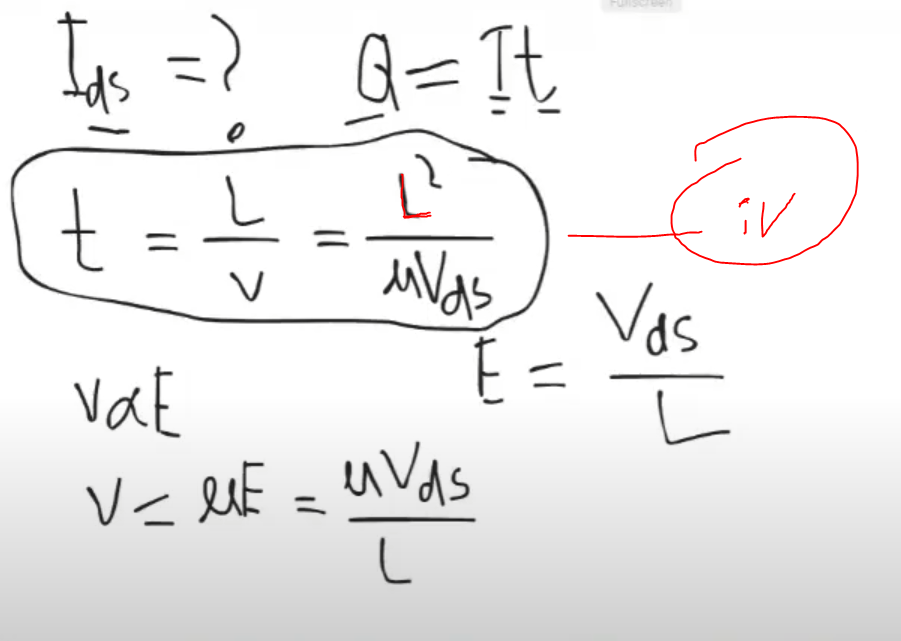 Fullscreen
I_ds = ? Q = It
t = L/v = L²/μV_ds iv
E = V_ds/L
v∝E
v = μE = μV_ds/L